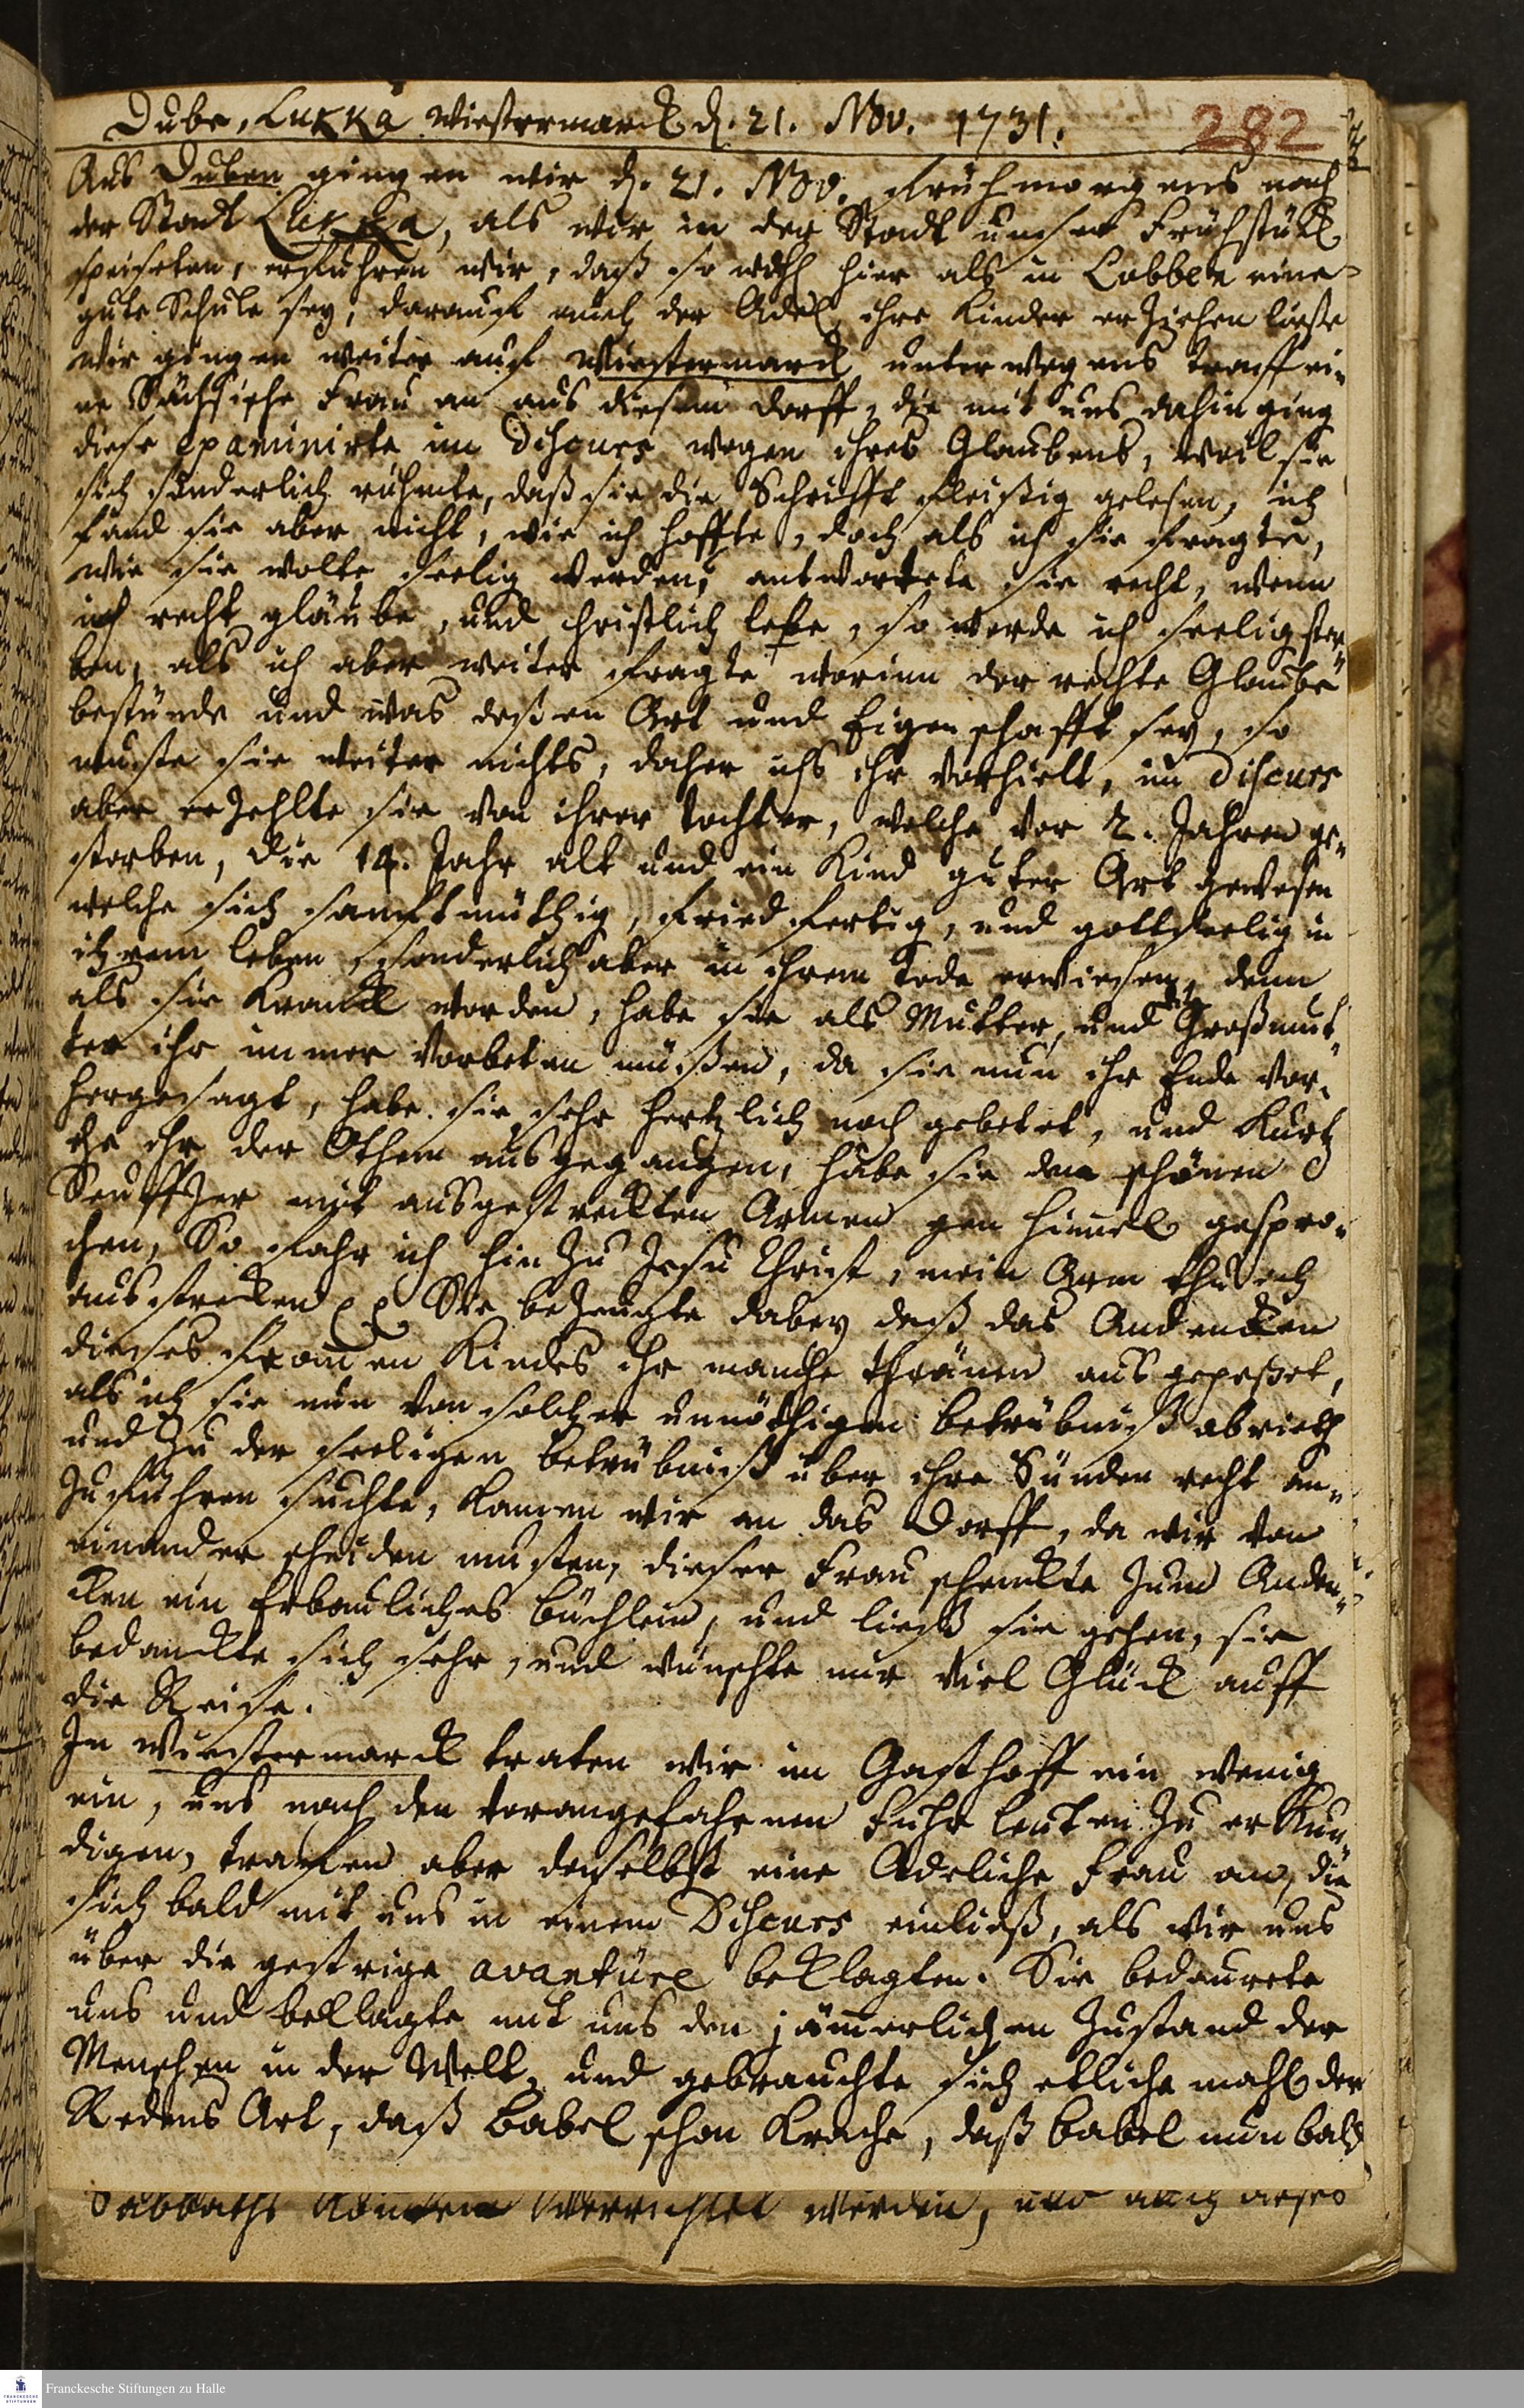 Dube, Lukka Wiestermarck d. 21. Nov. 1731.
282
Aus Duben gingen wir d. 21. Nov. frühmorgens nach
der Stadt Lukka, als wir in der Stadt unser Frühstück
speiseten, erfuhren wir, daß so wohl hier als in Lobben eine
gute Schule sey, darauf auch der Adel ihre Kinder erziehen ließe
wir gingen weiter auf Wiestermarck unterwegens traff ei-
ne Sächsische Frau an aus diesem Dorff, die mit uns dahin ging
diese examinirte im Discurs wegen ihres Glaubens, weil sie
sich sonderlich rühmte, daß sie die Schrifft fleißig gelesen, ich
fand sie aber nicht, wie ich hoffte, doch als ich sie fragte,
wie sie wolte seelig werden, antwortete sie recht, wenn
ich recht gläube, und christlich lebe, so werde ich seelig ster-
ben, als ich aber weiter fragte worinn der rechte Glaube
bestünde und was deßen Art und Eigenschafft sey, so
wuste sie weiter nichts, daher ichs ihr vorhielt, im Discurs
aber erzehlte sie von ihrer Tochter, welche vor 2. Jahren ge-
storben, die 14. Jahr alt und ein Kind guter Art gewesen
welche sich sanftmüthig, friedfertig, und gottseelig in
ihrem Leben, sonderlich aber in ihrem Tode erwiesen, denn
als sie kranck worden, habe sie als Mutter, und die Großmut-
ter ihr immer vorbeten müßen, da sie nun ihr Ende vor-
hergesagt, habe sie sehr hertzlich nach gebetet, und kurtz
ehe ihr der Othem ausgegangen, habe sie den schönen
Seuffzer mit ausgestreckten Armen gen Himmel gespro-
chen, So fahr ich hin zu Jesu Christ, mein Arm thu ich
ausstrecken Sie bezeugte dabey daß das Andencken
dieses frommen Kindes ihr manche Thränen ausgepreßet,
als ich sie nun von solcher unnöthigen Betrübniß abrieth
und zu der seeligen Betrübniß über ihre Sünden recht an-
zuführen suchte, kamen wir an das Dorff, da wir von
einander scheiden musten, dieser Frau schenckte zum Anden-
cken ein Erbauliches Büchlein, und ließ sie gehen, sie
bedanckte sich sehr, und wünschte mir viel Glück auff
die Reise.
In Wiestermarck traten wir im Gasthoff ein wenig
ein, uns nach den vorangefahrnen Fuhrleuten zu erkun-
digen, trafen aber daselbst eine Adeliche Frau an, die
sich bald mit uns in einem Discurs einließ, als wir uns
über die gestrige avanture beklagten. Sie bedaurete
uns und beklagte mit uns den jämmerlichen Zustand der
Menschen in der Welt, und gebrauchte sich etliche mahl der
Redens Art, daß Babel schon krache, daß Babel nun bald
Sabbaths verrichtet werden, und auch dieses
Franckesche Stiftungen zu Halle